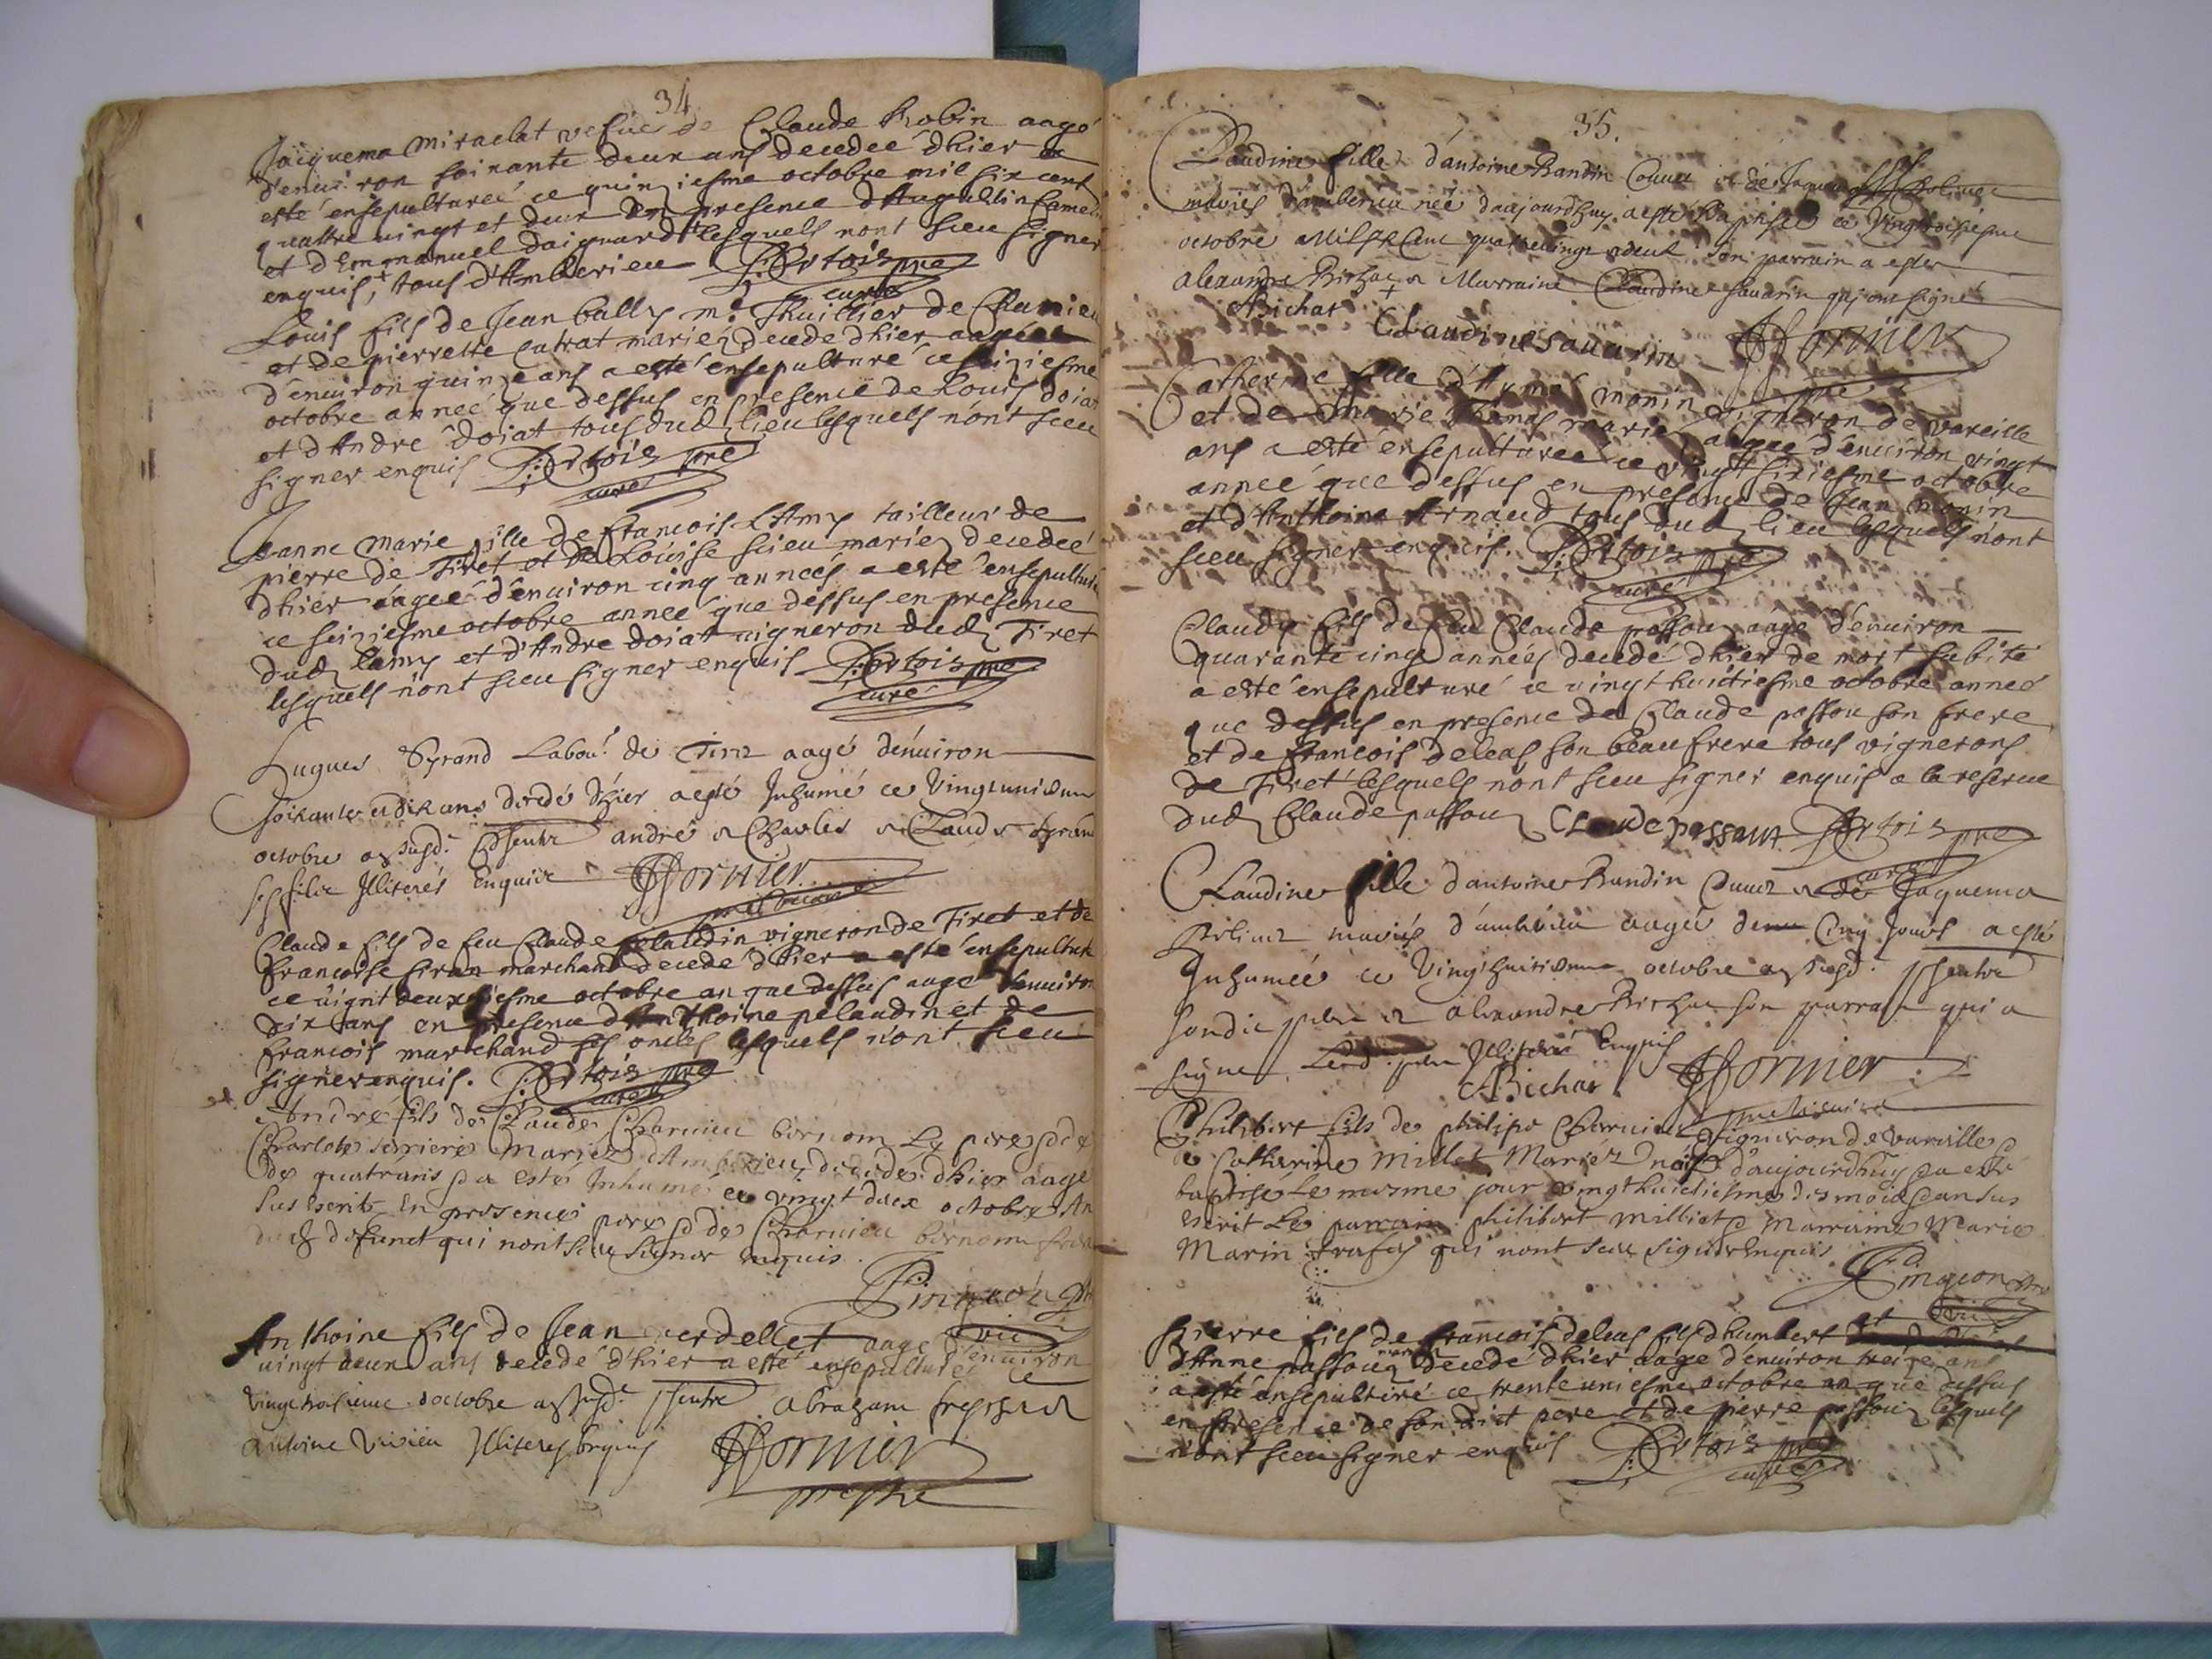 34
Jacquema Miraclat vefue de Claude Robin aagé
d'enuiron soixante deux ans decedeé dhier a
esté ensepultureé ce quinziesme octobre mil six cent
quattre uingt et deux en presence d'Augustin
et d'Emmanuel daiguard lesquels nont sceu signer
enquis, tous d'Amberieu P: Ortois pre
curé
Louis fils de Jean bally me Thuillier de
et de pierrette catrat mariez decede dhier aagé
d'enuiron quinze ans a esté ensepulturé ce seiziesme
octobre anneé que dessus en presence de Louis doiat
et d'Andre doiat tous dud lieu lesquels n'ont sceu
signer enquis P: Ortois pre
curé
Jeanne Marie fille de francois L'Amy tailleur de
pierre de Tiret et de Louise scieu mariez decedeé
dhier aageé d'enuiron cinq anneés a esté ensepulturé
ce seiziesme octobre anneé que dessus en presence
dud lamy et d'Andre doiat uigneron dud Tiret
lesquels n'ont sceu signer enquis P: Ortois pre
curé
Hugues Labou.r de Tiret aagé d'enuiron
soixante et dix ans decedé d'hier a esté Inhumé ce Vingt uniesme
octobre an susd. andré et Charles et Claude
ses fils Illiterés Enquis Fornier
Claude fils de feu Claude pelaudin vigneron de Tiret et de
francoise marchand decedé d'hier a esté ensepulturé
ce uignt deuxiesme octobre an que dessus aagé d'enuiron
dix ans en presence d'Anthoine pelaudin et de
francois marchand ses oncles lesquels n'ont sceu
signer enquis. P: Ortois pre
curé
André fils de Claude Charuieu
Charlote mariez d'Amberieu decede dhier aagé
de quatr ans a esté Inhumé ce vingt deux octobre An
sus escrit En presence pere de Charuieu
dud defunct qui nont sceu signer enquis.
Anthoine fils de Jean uerdellet aagé d'enuiron
uingt deux ans decedé d'hier a esté ensepulturé ce
vingt troisieme d'octobre an susd. Abraham et
antoine Illiteres Enquis Fornier
prestre
35.
Claudine fille d'antoine Bandin et de
mariés d'amberieu neé d'aujourdhuy a esté Baptiseé ce Vingt
octobre Mil six Cent quatre vingt et deux. son parrain a esté
alexandre Bichat et Marraine Claudine sauarin qui ont signé
ABichat Claudine sauarin Fornier
pre
Catherine fille d'Aymé monin vigneron de vareille
et de Marie Thomas mariez aageé d'enuiron vingt
ans a esté ensepultureé ce vingt sixiesme octobre
anneé que dessus en presence de Jean monin
et d'Anthoine Arnaud tous dud lieu lesquels n'ont
sceu signer enquis. P: Ortois pre
curé
Claude fils de feu Claude passou aagé d'enuiron
quarante cinq années decedé dhier de mort subite
a esté ensepulturé ce vingt huictiesme octobre anneé
que dessus en presence de Claude passou son frere
et de francois deleas son beau frere tous vignerons
de Tiret lesquels n'ont sceu signer enquis a la reserue
dud Claude passou Claude passout P: Ortois pre
curé
Claudine fille d'antoine Bandin et de Jaquema
mariés d'amberieu aageé de Cinq Jours a esté
Inhumeé ce Vingt huitiesme octobre an susd.
sondit pere et alexandre Bichat son parrain qui a
signé Led. pere Illiteré Enquis
ABichat Fornier
Philibert fils de philipe Charuieu vigneron de vareille
de Catherine Millet Mariez né d'aujourdhuy a esté
baptisé Le mesme jour vingt huictiesme des mois an sus
escrit Le parrain philibert milliat Marraine Marie
Marin qui nont sceu signer Enquis
Pierre fils de francois deleas fils d'humbert et
d'Anne passou mariez decedé dhier aagé d'enuiron treize ans
a esté ensepulturé ce trente uniesme octobre an que dessus
en presence de son dit pere et de pierre passou lesquels
n'ont sceu signer enquis P: Ortois pre
curé